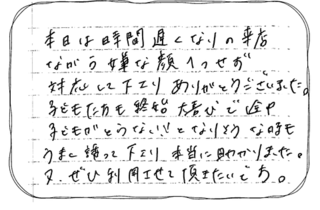 本日は時間遅くなりの来店
ながら嫌な顔1つせず
対応して下さり ありがとうございました。
子どもたちも終始 大喜びで途中
子どもがとうない!!となりそうな時も
うまく誘って下さり 本当に助かりました。
又、ぜひ利用させて頂きたいです。